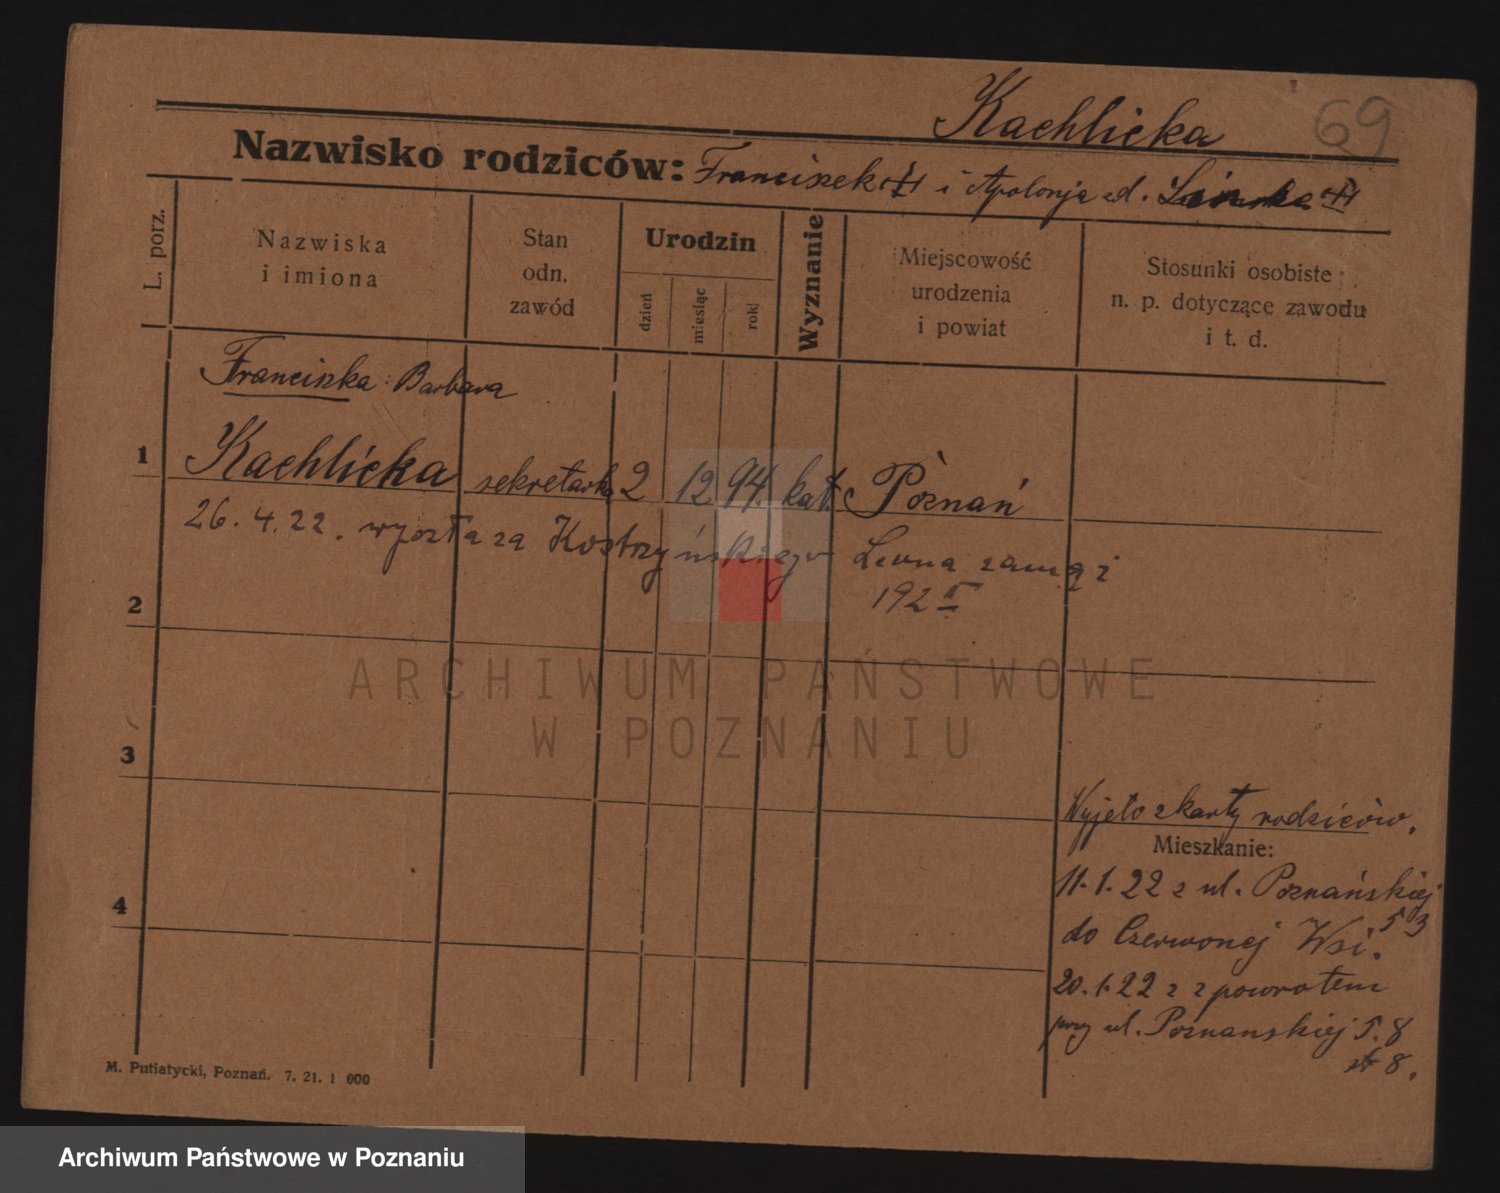 Kachlicka 69
Nazwisko rodziców: Franciszek i Apolonja zd.
L. porz.
Nazwiska
i imiona
Stan
odn.
zawód
Urodzin
dzień
miesiąc
rok
Wyznanie
Miejscowość
urodzenia
i powiat
Stosunki osobiste
n. p. dotyczące zawodu
i t. d.
Franciszka Barbara
1 Kachlicka sekretarka 2 12 94. kat. Poznań
26.4.22. wyszła za Kostrzyńskiego Leona zamąż
192
2
ARCHIWUM PAŃSTWOWE
W POZNANIU
3
Wyjęto z karty rodziców.
Mieszkanie:
4
11.1.22 z ul. Poznańskiej
53
do Czerwonej Wsi.
20.1.22 z powrotem
przy ul. Poznanskiej 5.8
8.
M. Putiatycki, Poznań. 7. 21. 1 000
Archiwum Państwowe w Poznaniu